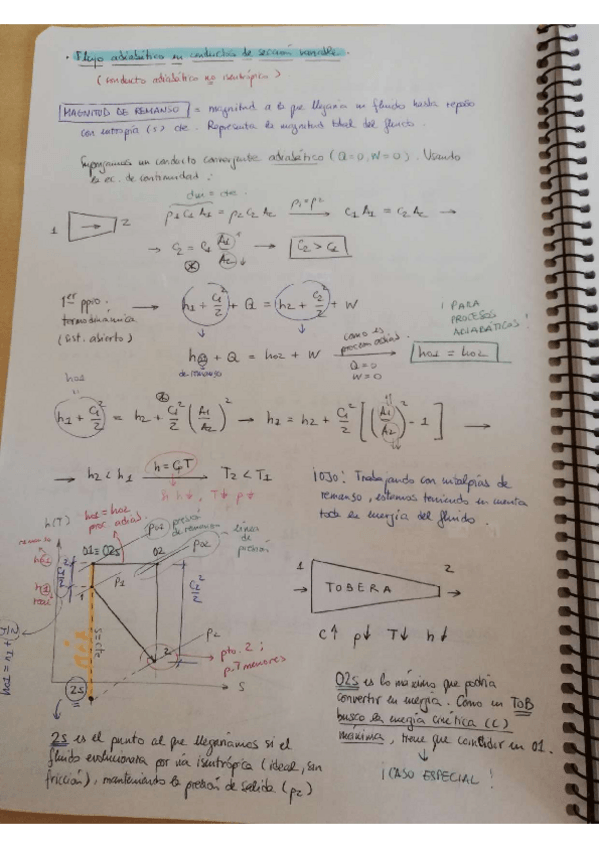 · Flujo adiabático en conductos de sección variable.
(conducto adiabático no isentrópico)
MAGNITUD DE REMANSO = magnitud a la que llegaría un fluido hasta reposo
con entropía (s) cte. Representa la magnitud total del fluido.
Supongamos un conducto convergente adiabático (Q=0, W=0). Usando
la ec. de continuidad:
dm = cte.
1 2 ρ1 C1 A1 = ρ2 C2 A2 ρ1=ρ2 → C1 A1 = C2 A2 →
→ C2 = C1 A1↑/A2↓ → C2 > C1
1er ppio. → h1 + C1²/2 + Q = h2 + C2²/2 + W
termodinámica
(sist. abierto)
¡PARA
PROCESOS
ADIABÁTICOS!
h01 + Q = h02 + W
de remanso
como es
proceso adiab.
Q=0
W=0
h01 = h02
h01
h1 + C1²/2 = h2 + C1²/2 (A1/A2)² → h1 = h2 + C1²/2 [(A1/A2)² - 1] →
→ h2 < h1 h = CpT → T2 < T1
si h↓, T↓ p↓
¡OJO! Trabajando con entalpías de
remanso, estamos teniendo en cuenta
toda la energía del fluido.
h01 = h02
proc. adiab.
p01 presión
de remanso
línea
de
presión
h(T)
remanso
h01
01≡02s
02
p02
h1
real
1
p1
C1²/2
C2²/2
s=cte
h01 = h1 + C1²/2
p2
2
pto. 2:
p,T menores
2s
s
1 2
TOBERA
C↑ p↓ T↓ h↓
2s es el punto al que llegaríamos si el
fluido evolucionara por vía isentrópica (ideal, sin
fricción), manteniendo la presión de salida (p2)
02s es lo máximo que podría
convertir en energía. Como en TOB
busco la energía cinética (C)
máxima, tiene que coincidir en 01.
¡CASO ESPECIAL!